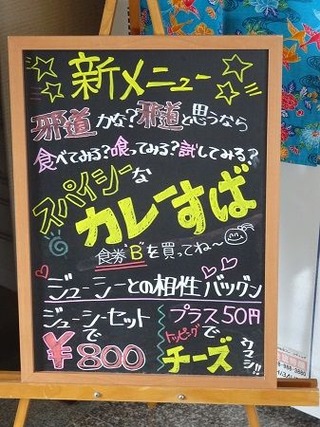 新メニュー
邪道かな?邪道と思うなら
食べてみる?喰ってみる?試してみる?
スパイシーな
カレーすば
食券"B"を買ってね〜
ジューシーとの相性バツグン
ジューシーセットで
¥800
プラス50円
トッピングで
チーズ
ウマシ!!